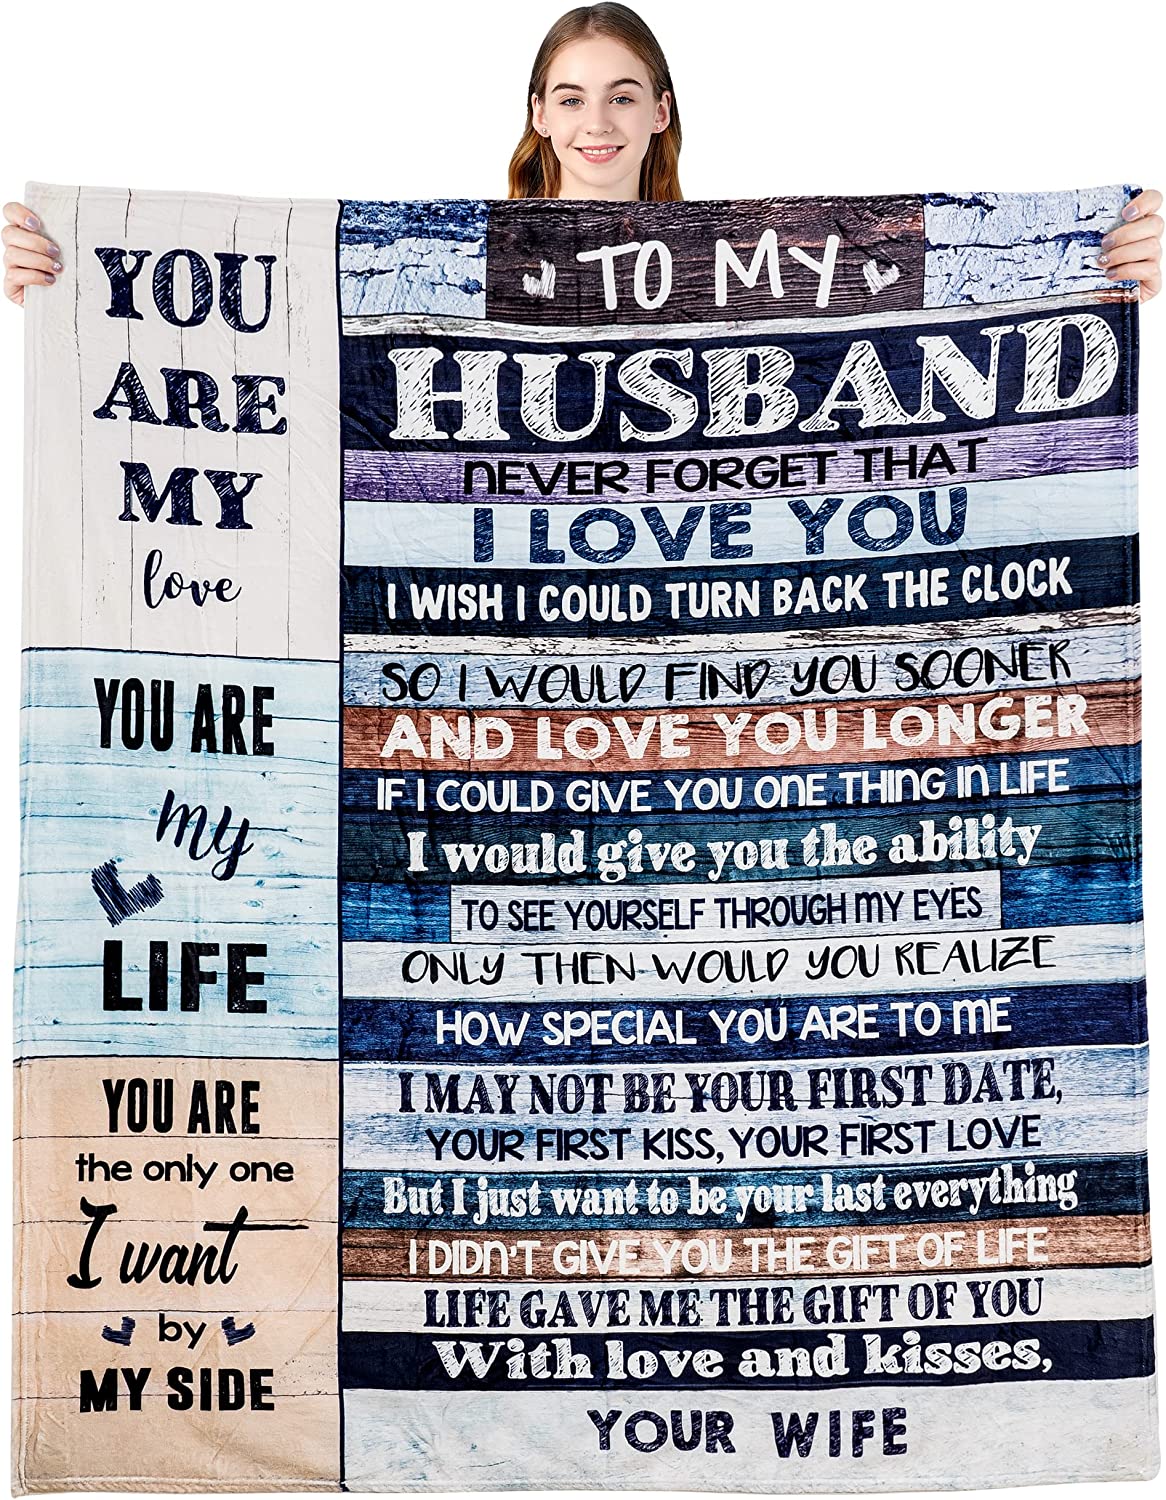 YOU
ARE
MY
love
YOU ARE
my
LIFE
YOU ARE
the only one
I want
by
MY SIDE
TO MY
HUSBAND
NEVER FORGET THAT
I LOVE YOU
I WISH I COULD TURN BACK THE CLOCK
SO I WOULD FIND YOU SOONER
AND LOVE YOU LONGER
IF I COULD GIVE YOU ONE THING IN LIFE
I would give you the ability
TO SEE YOURSELF THROUGH MY EYES
ONLY THEN WOULD YOU REALIZE
HOW SPECIAL YOU ARE TO ME
I MAY NOT BE YOUR FIRST DATE,
YOUR FIRST KISS, YOUR FIRST LOVE
But I just want to be your last everything
I DIDN'T GIVE YOU THE GIFT OF LIFE
LIFE GAVE ME THE GIFT OF YOU
With love and kisses,
YOUR WIFE